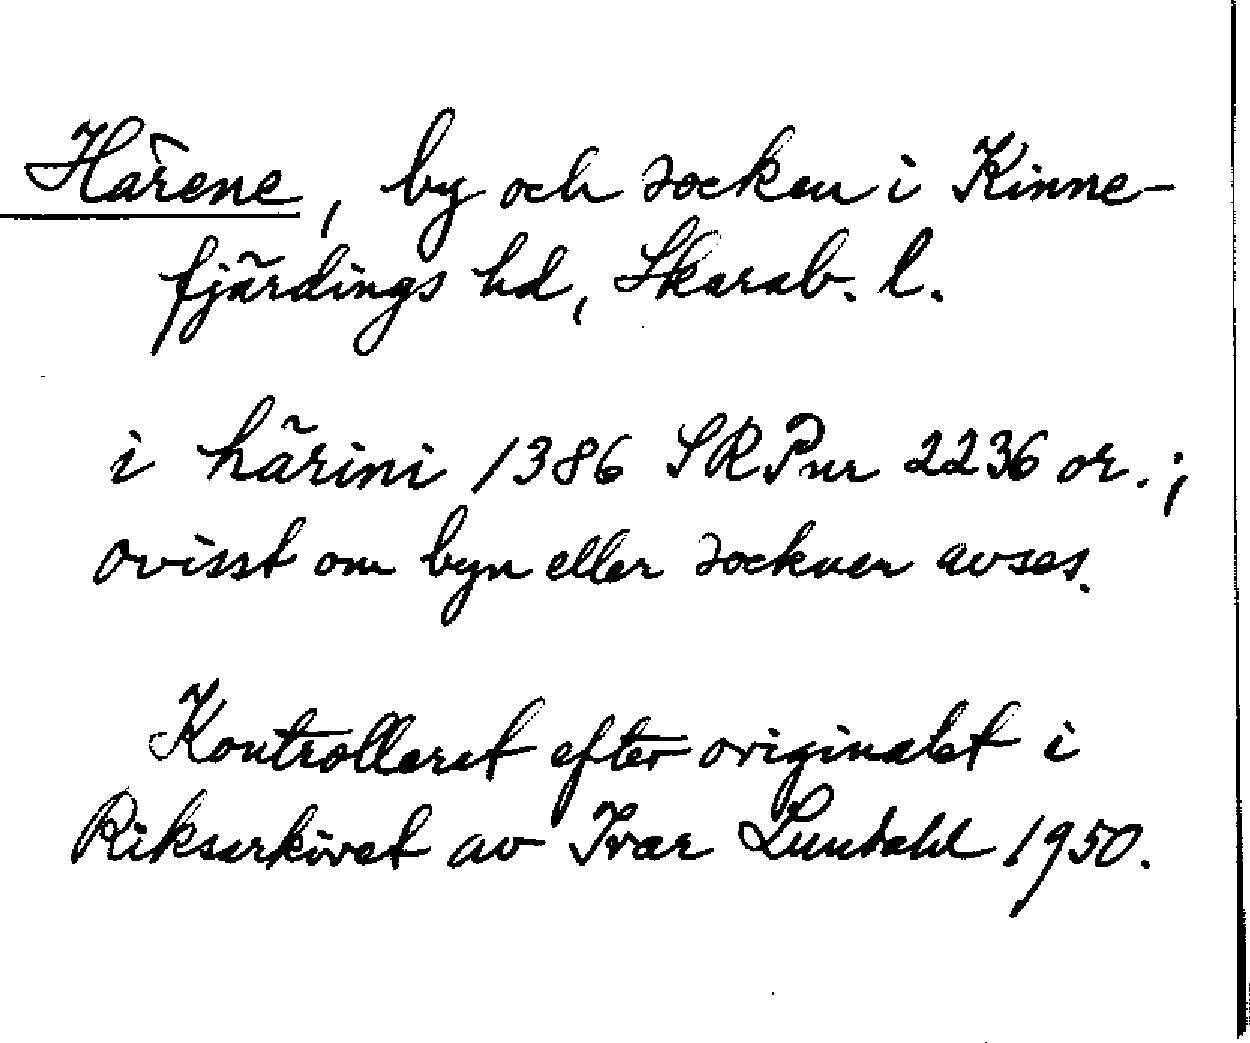 Härene, by och socken i Kinne-
fjärdings hd, Skarab. l.
i härini 1386 SRPnr 2236 or.;
ovisst om byn eller socknen avses.
Kontrollerat efter originalet i
Riksarkivet av Ivar Lundahl 1950.